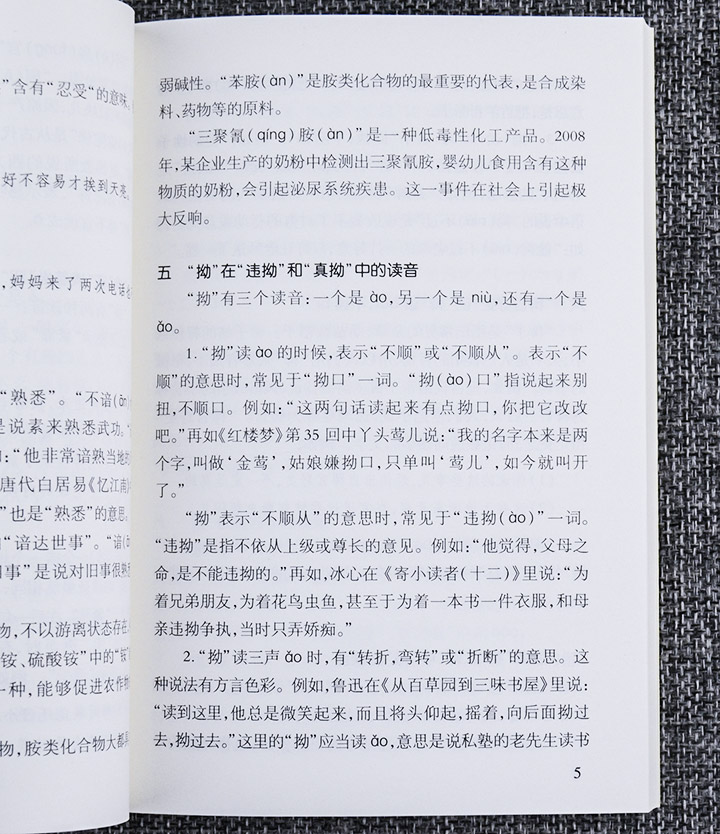 ”含有“忍受”的意味。
好不容易才挨到天亮。
，妈妈来了两次电话
“熟悉”。“不谙(ān
是说素来熟悉武功。
：“他非常谙熟当地的
唐代白居易《忆江南》
”也是“熟悉”的意思。
“谙达世事”。“谙(
旧事”是说对旧事很熟
物，不以游离状态存在
铵、硫酸铵”中的“铵
一种，能够促进农作物
物，胺类化合物大都具
弱碱性。“苯胺(àn)”是胺类化合物的最重要的代表，是合成染
料、药物等的原料。
“三聚氰(qíng)胺(àn)”是一种低毒性化工产品。2008
年，某企业生产的奶粉中检测出三聚氰胺，婴幼儿食用含有这种
物质的奶粉，会引起泌尿系统疾患。这一事件在社会上引起极
大反响。
五 “拗”在“违拗”和“真拗”中的读音
“拗”有三个读音：一个是 ào，另一个是 niù，还有一个是
ǎo。
1. “拗”读 ào 的时候，表示“不顺”或“不顺从”。表示“不
顺”的意思时，常见于“拗口”一词。“拗(ào)口”指说起来别
扭，不顺口。例如：“这两句话读起来有点拗口，你把它改改
吧。”再如《红楼梦》第 35 回中丫头莺儿说：“我的名字本来是两
个字，叫做‘金莺’，姑娘嫌拗口，只单叫‘莺儿’，如今就叫开
了。”
“拗”表示“不顺从”的意思时，常见于“违拗(ào)”一词。
“违拗”是指不依从上级或尊长的意见。例如：“他觉得，父母之
命，是不能违拗的。”再如，冰心在《寄小读者(十二)》里说：“为
着兄弟朋友，为着花鸟虫鱼，甚至于为着一本书一件衣服，和母
亲违拗争执，当时只弄娇痴。”
2. “拗”读三声 ǎo 时，有“转折，弯转”或“折断”的意思。这
种说法有方言色彩。例如，鲁迅在《从百草园到三味书屋》里说：
“读到这里，他总是微笑起来，而且将头仰起，摇着，向后面拗过
去，拗过去。”这里的“拗”应当读 ǎo，意思是说私塾的老先生读书
5